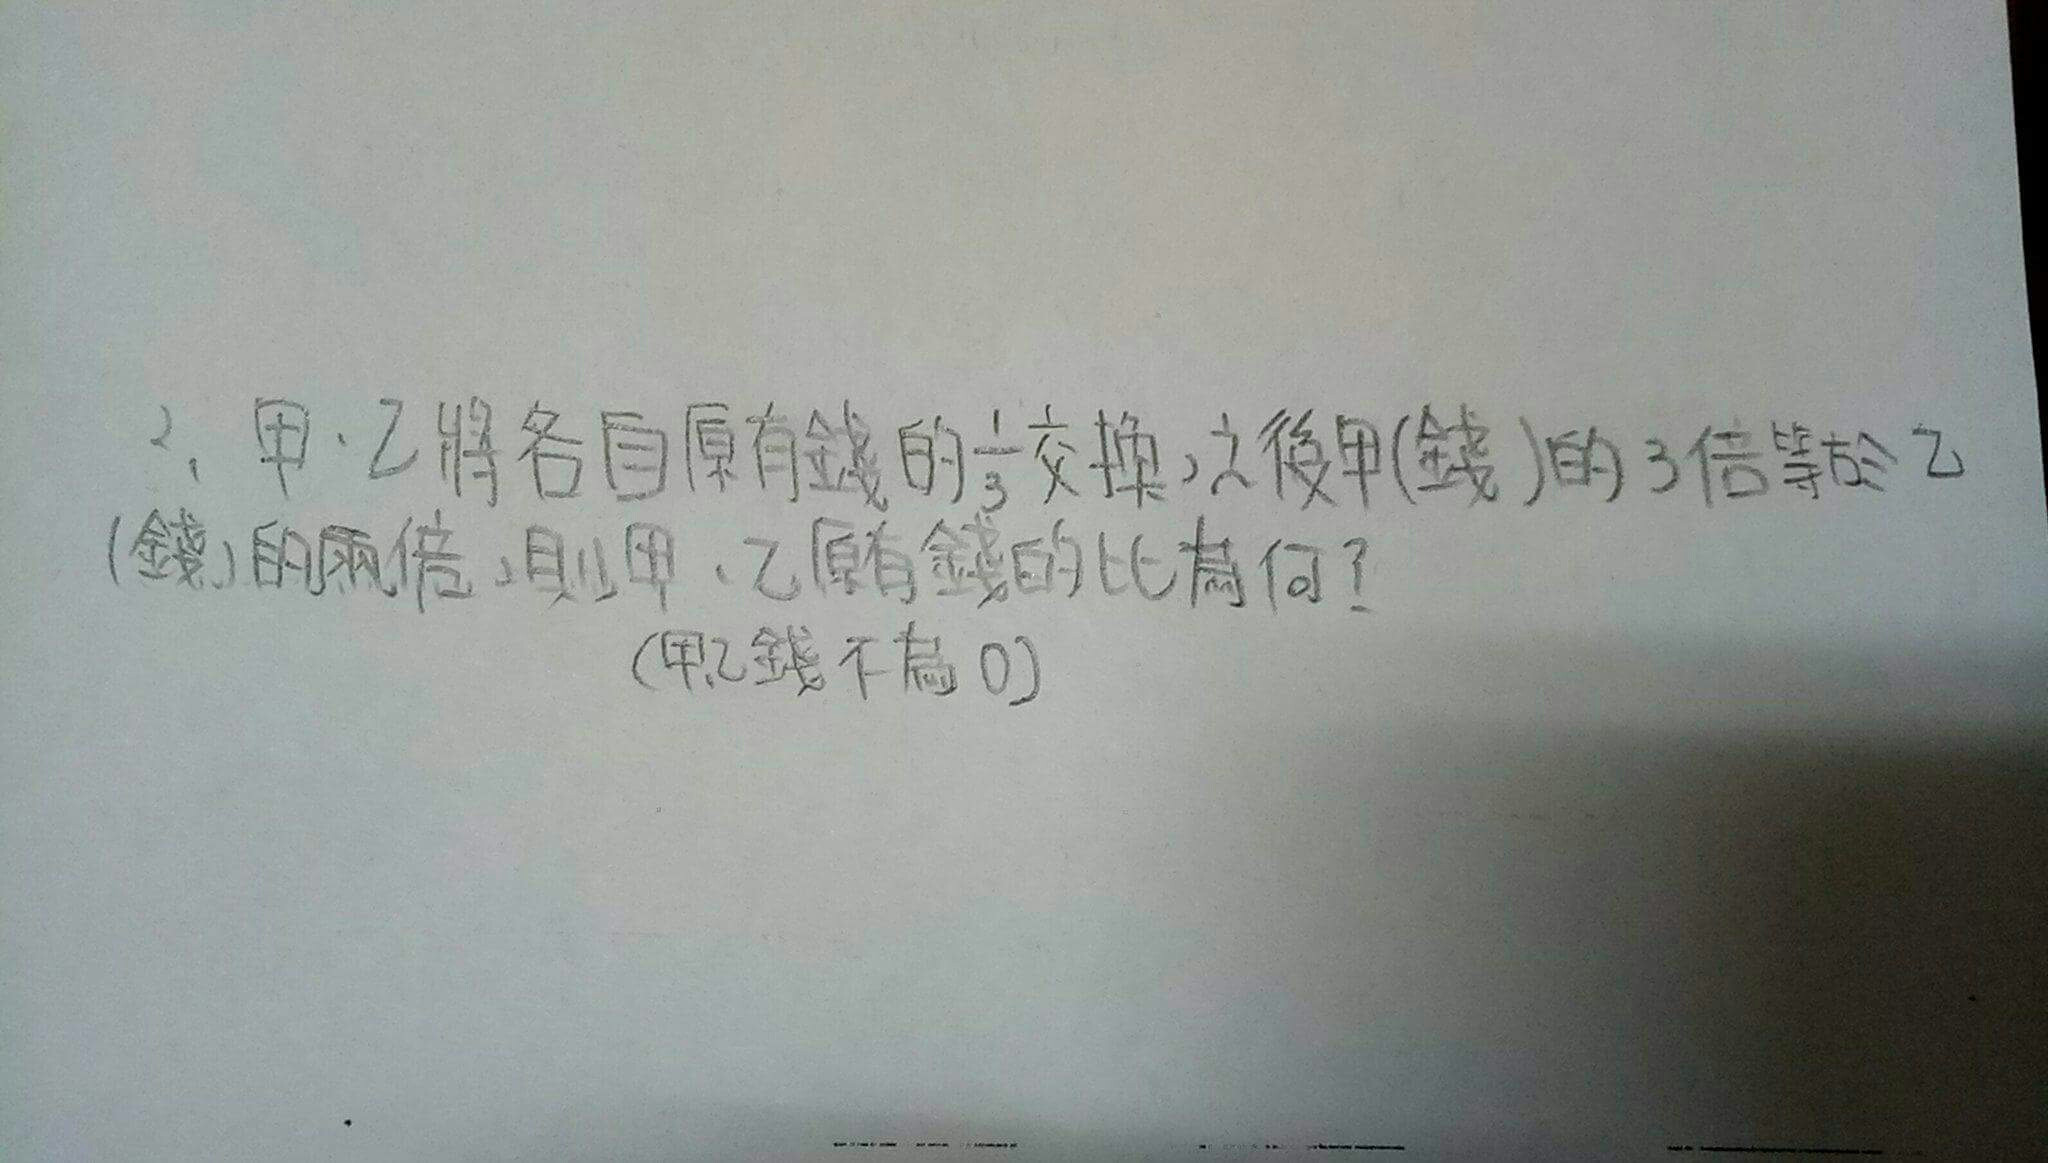 2. 甲、乙將各自原有錢的1/3交換,之後甲(錢)的3倍等於乙
(錢)的兩倍,則甲、乙原有錢的比為何?
(甲乙錢不為0)